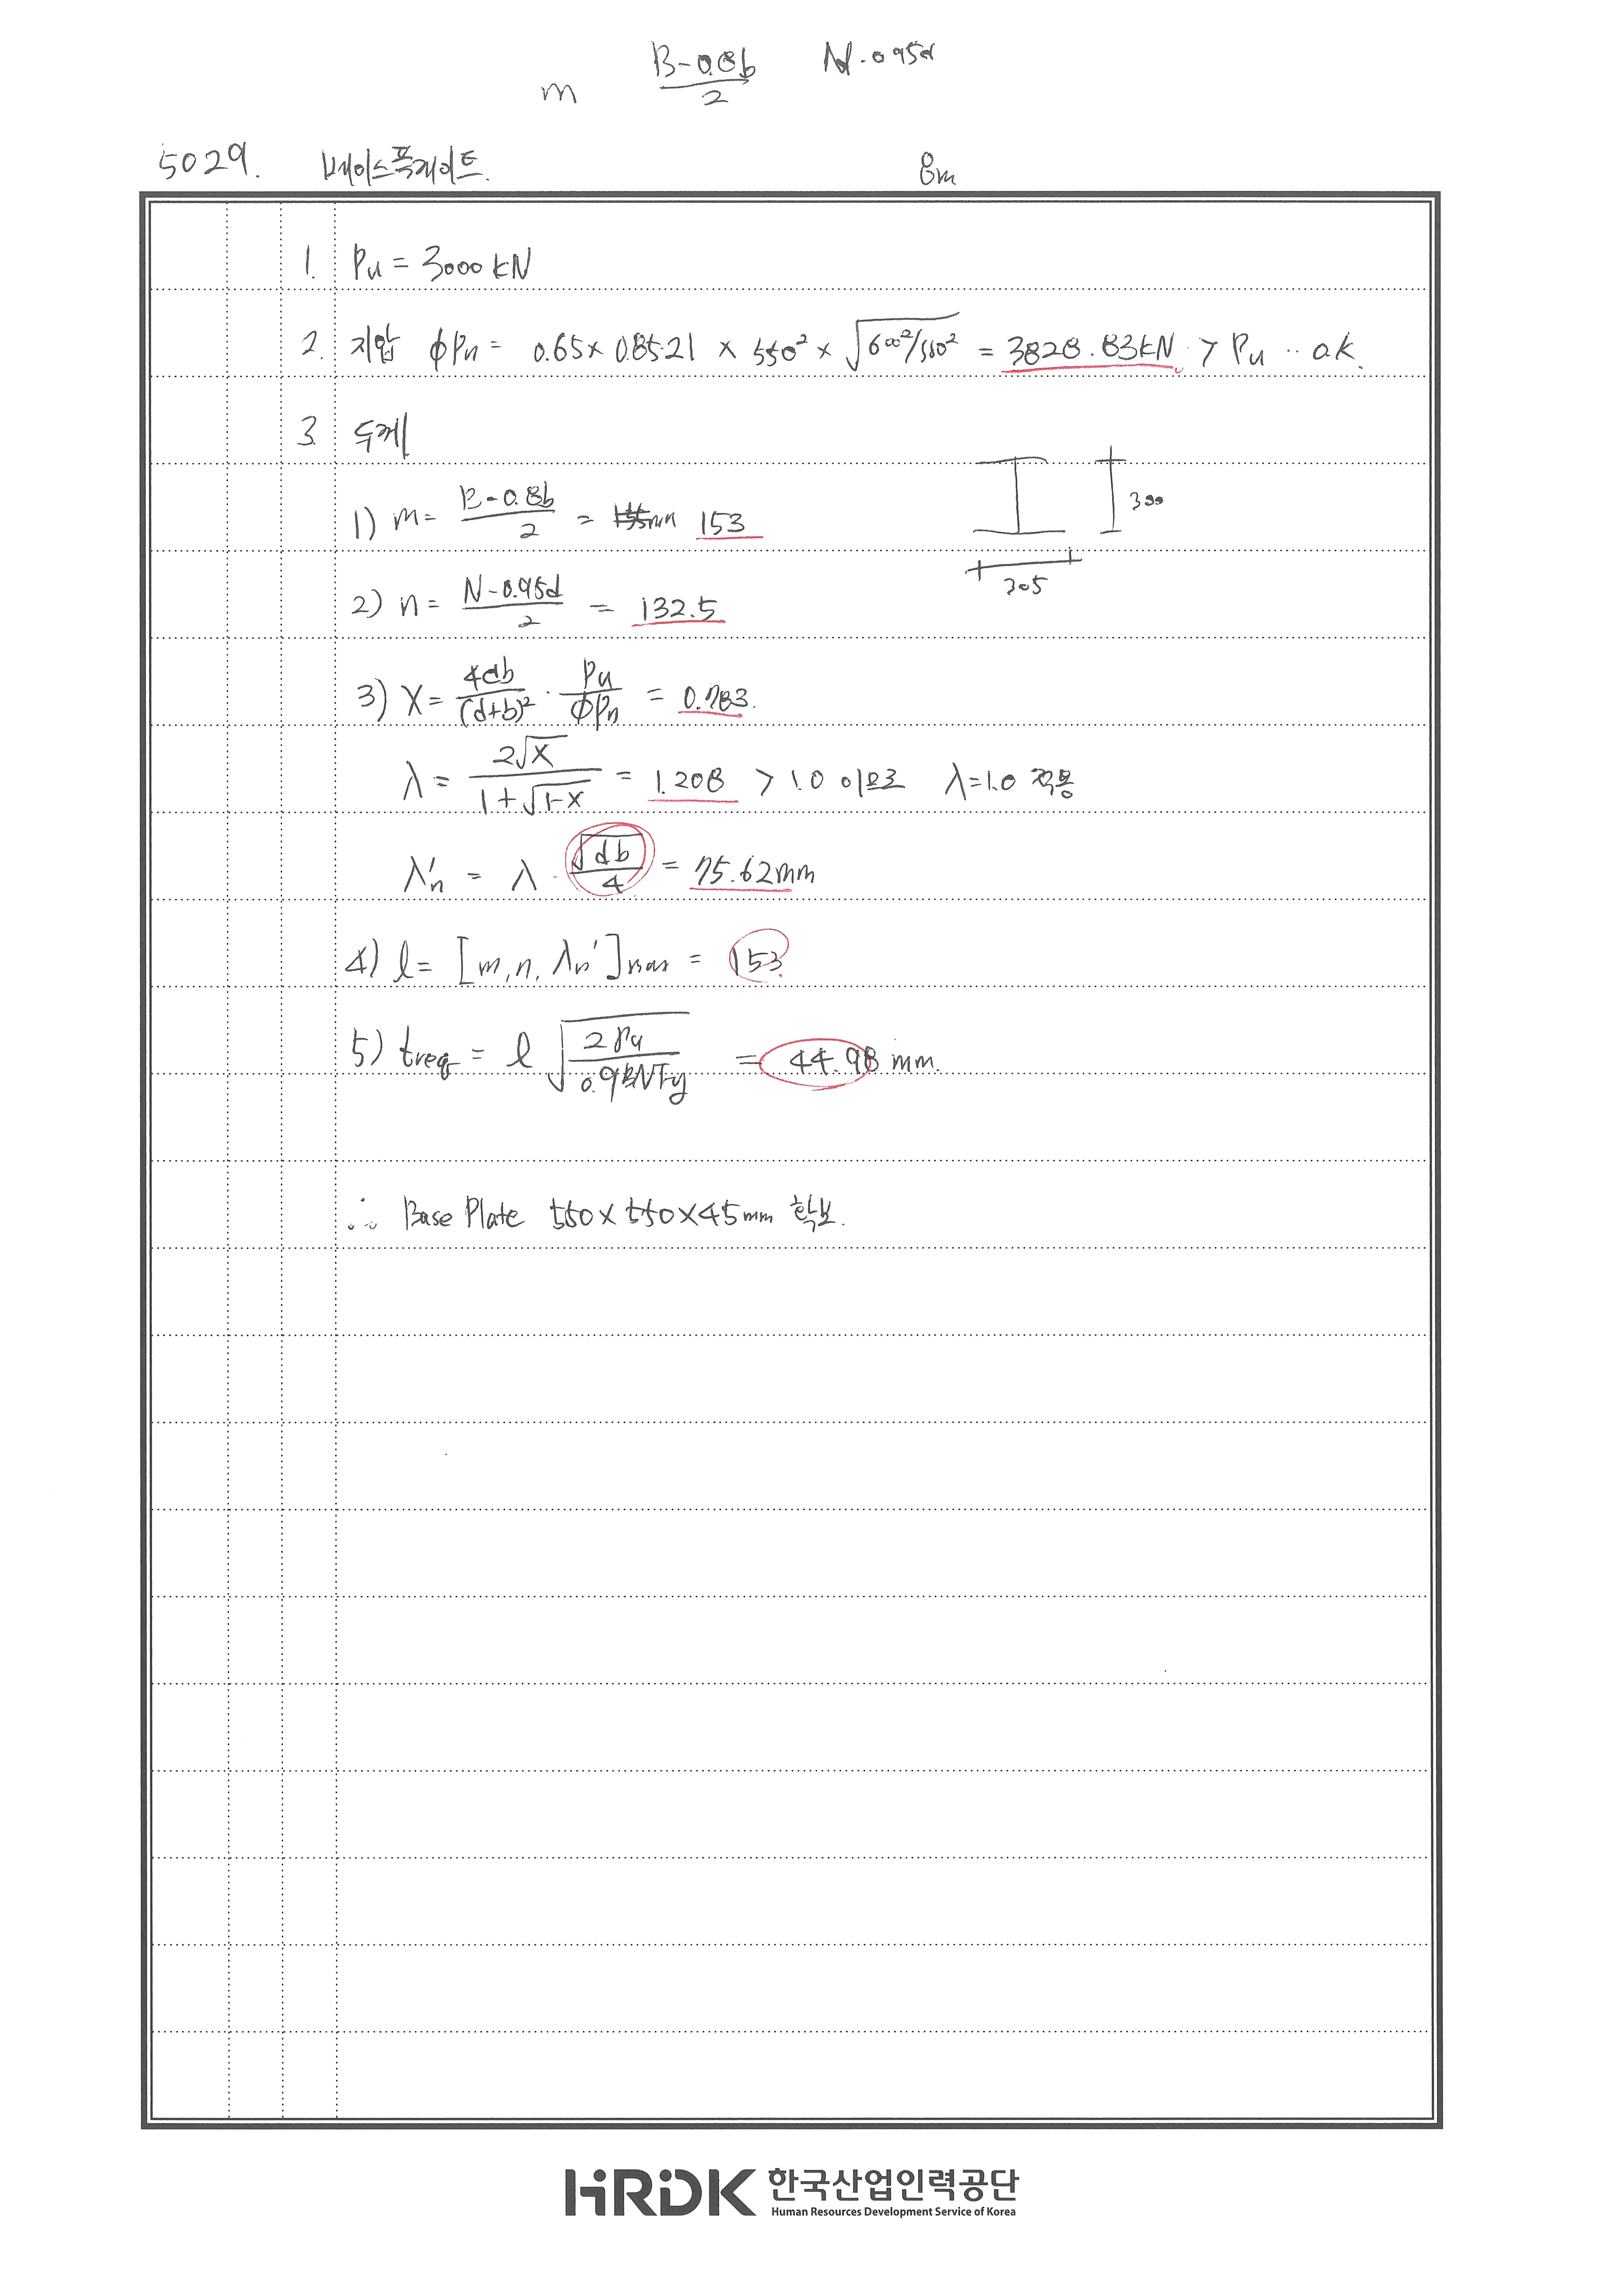 m B-0.8b/2 N-0.95d
5029. 베이스플레이트. 8m
1. Pu = 3000 kN
2. 지압 ϕPn = 0.65 × 0.85·21 × 550² × √(600²/550²) = 3828.83kN > Pu ∴ o.k.
3. 두께
1) m = B-0.8b/2 = 153
300
305
2) n = N-0.95d/2 = 132.5
3) X = 4db/(d+b)² · Pu/ϕPn = 0.783.
λ = 2√X/1+√1-X = 1.208 > 1.0 이므로 λ=1.0 적용
λn' = λ · √db/4 = 75.62mm
4) l = [m, n, λn']max = 153.
5) treq = l √(2Pu/0.9BNFy) = 44.98 mm.
∴ Base Plate 550×550×45mm 확보.
HRDK 한국산업인력공단
Human Resources Development Service of Korea